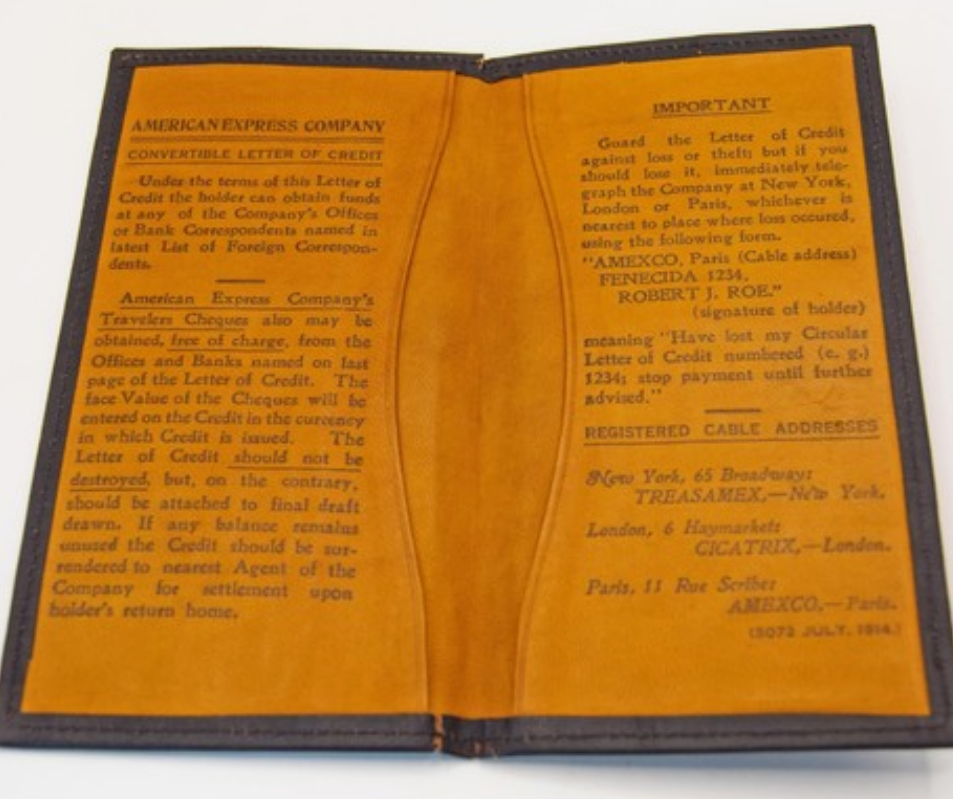 AMERICAN EXPRESS COMPANY
CONVERTIBLE LETTER OF CREDIT
Under the terms of this Letter of
Credit the holder can obtain funds
at any of the Company's Offices
or Bank Correspondents named in
latest List of Foreign Correspon-
dents.
American Express Company's
Travelers Cheques also may be
obtained, free of charge, from the
Offices and Banks named on last
page of the Letter of Credit. The
face Value of the Cheques will be
entered on the Credit in the currency
in which Credit is issued. The
Letter of Credit should not be
destroyed, but, on the contrary,
should be attached to final draft
drawn. If any balance remains
unused the Credit should be sur-
rendered to nearest Agent of the
Company for settlement upon
holder's return home.
IMPORTANT
Guard the Letter of Credit
against loss or theft; but if you
should lose it, immediately tele-
graph the Company at New York,
London or Paris, whichever is
nearest to place where loss occured,
using the following form.
"AMEXCO, Paris (Cable address)
FENECIDA 1234,
ROBERT J. ROE."
(signature of holder)
meaning "Have lost my Circular
Letter of Credit numbered (e. g.)
1234; stop payment until further
advised."
REGISTERED CABLE ADDRESSES
New York, 65 Broadway:
TREASAMEX,—New York.
London, 6 Haymarket:
CICATRIX,—London.
Paris, 11 Rue Scribe:
AMEXCO,—Paris.
(5072 JULY, 1914.)